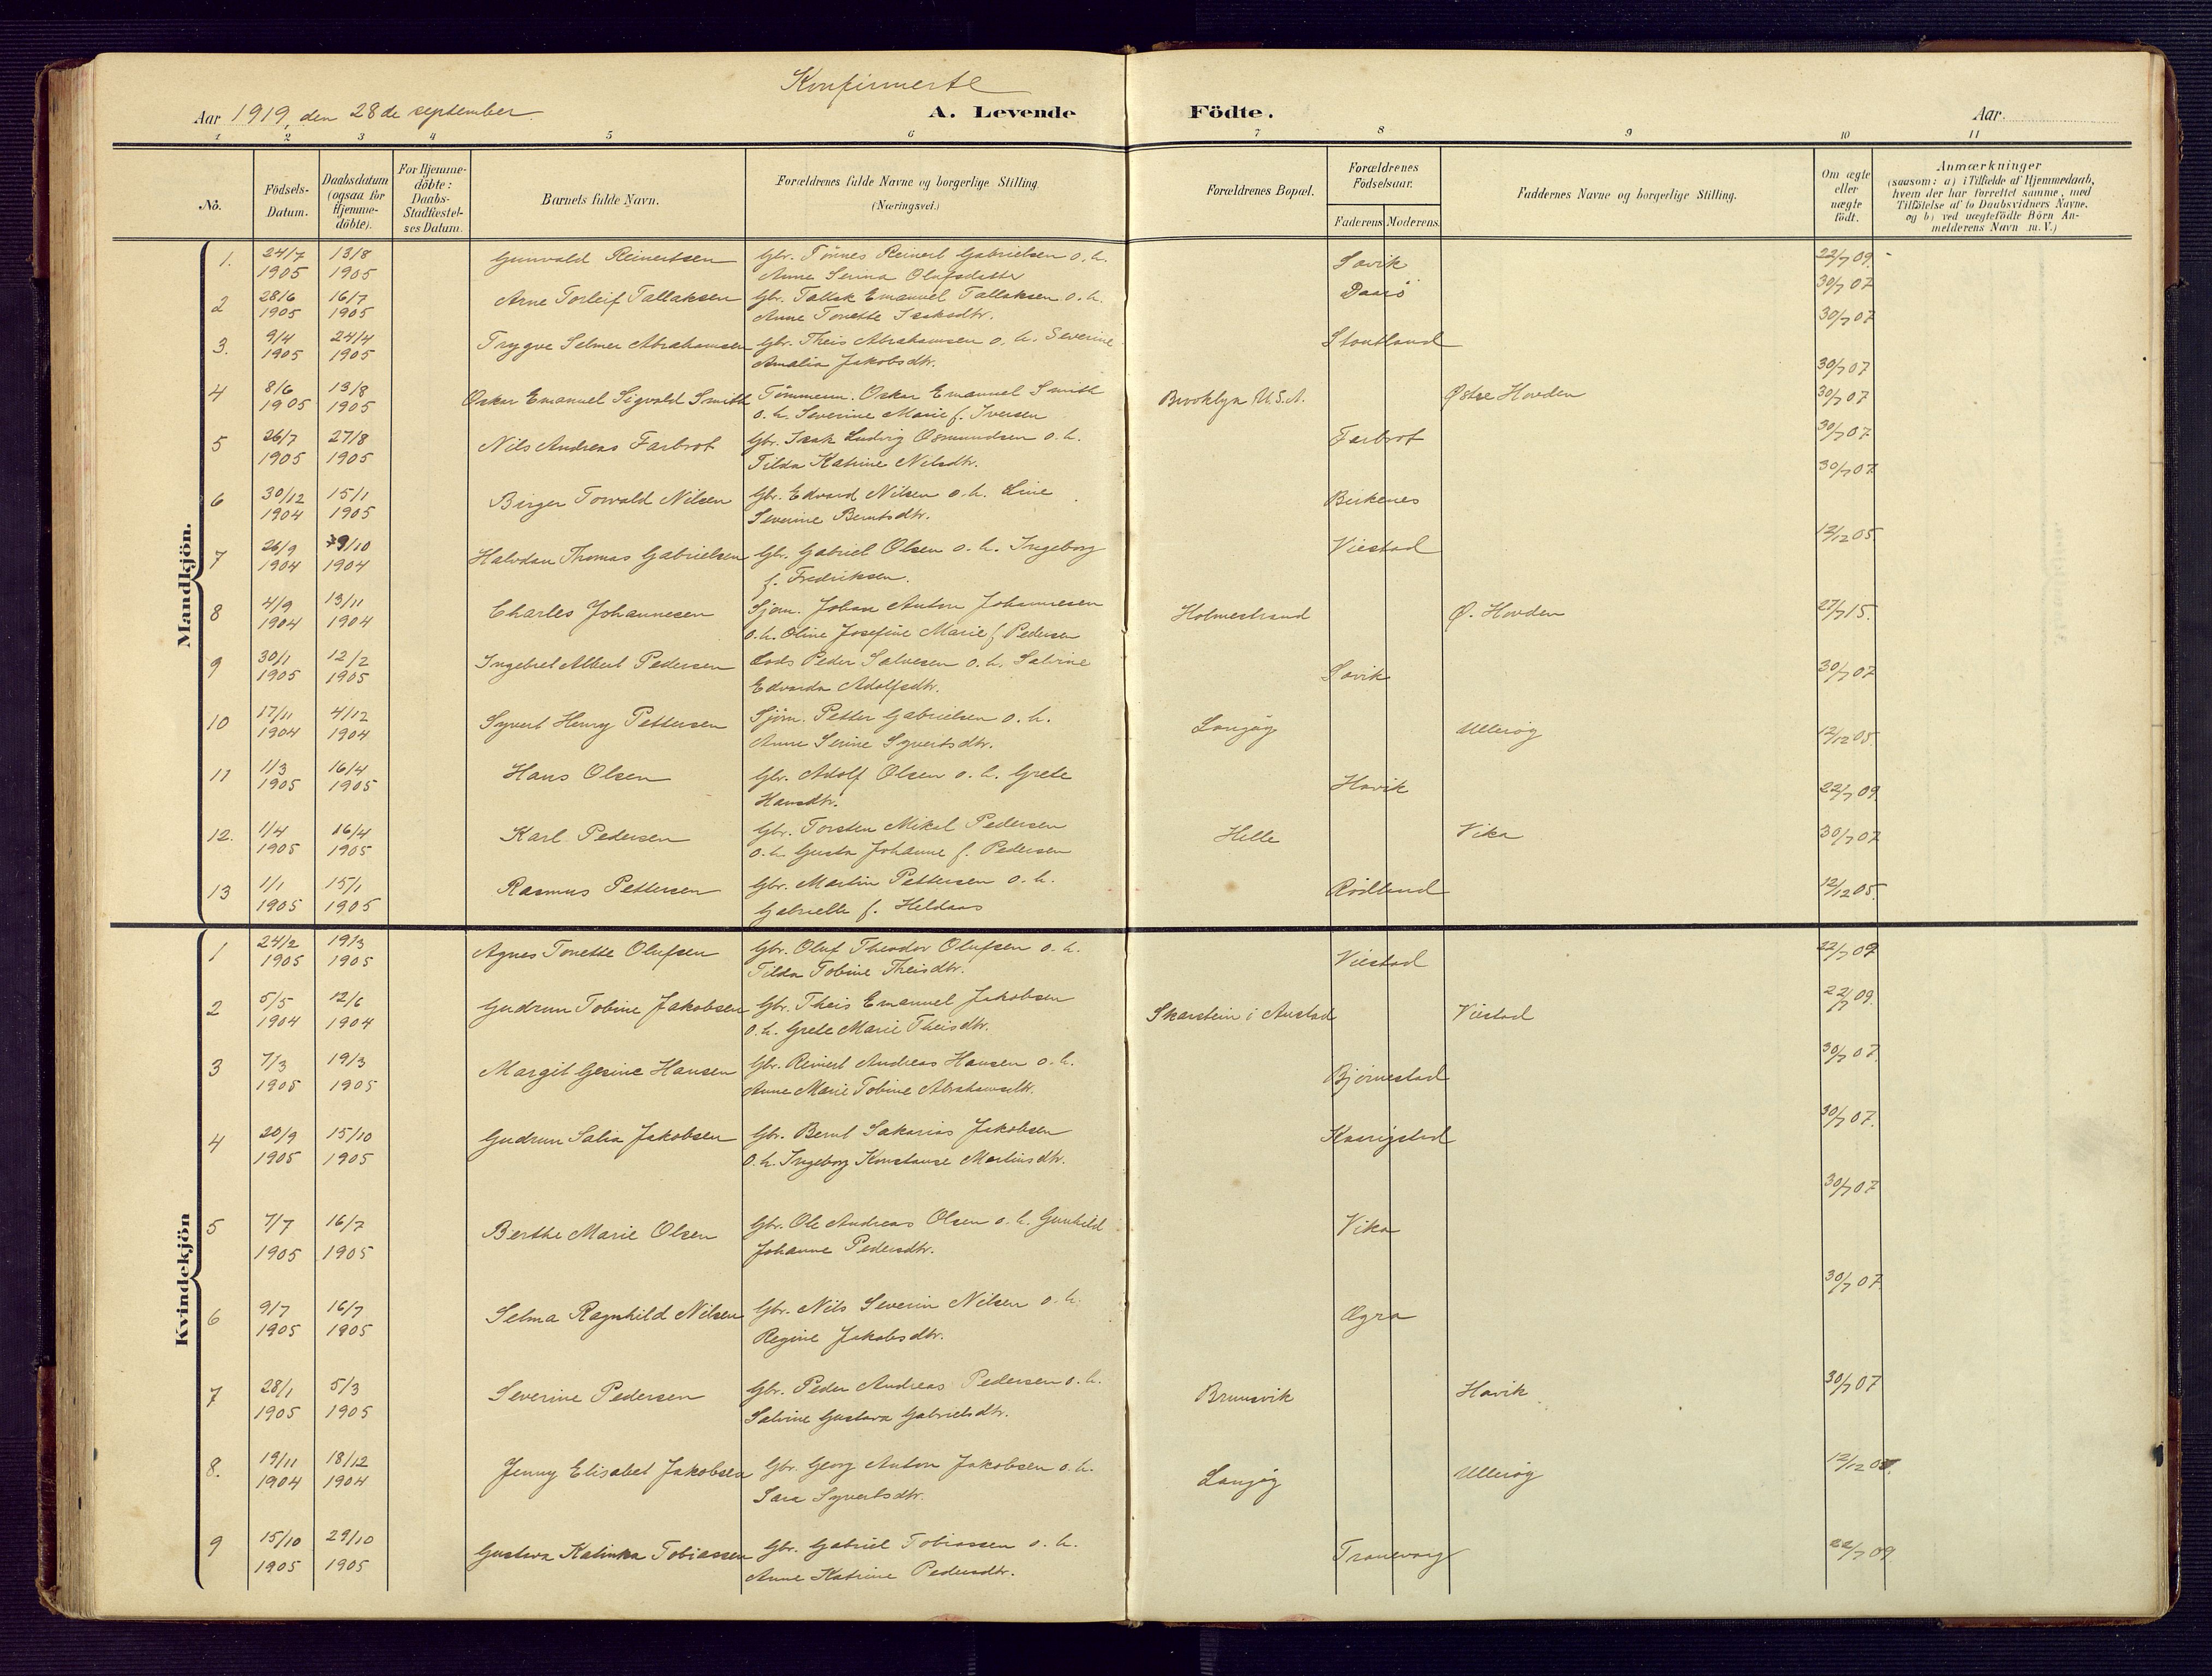 Konfirmerte
Aar 1919, den 28de september
A. Levende Födte.
Aar.
1 2 3 4 5 6 7 8 9 10 11
No.
Födsels-Datum.
Daabsdatum (ogsaa for Hjemme-döbte).
For Hjemme-döbte: Daabs-Stadfæstel-ses Datum.
Barnets fulde Navn.
Forældrenes fulde Navne og borgerlige Stilling. (Næringsvei.)
Forældrenes Bopæl.
Forældrenes Födselsaar.
Faderens Moderens.
Faddernes Navne og borgerlige Stilling.
Om ægte eller uægte födt.
Anmærkninger
(saasom: a) i Tilfælde af Hjemmedaab, hvem der har forrettet samme, med Tilföielse af to Daabsvidners Navne, og b) ved uægtefödte Börn An-melderens Navn m. V.)
Mandkjön.
1. 24/7 13/8 Gunvald Reinertsen Gbr. Tönnes Reinert Gabrielsen o. h. Savik 22/7 09.
1905 1905 Anne Serina Olufsdatter
2 28/6 16/7 Arne Torleif Tallaksen Gbr. Tallak Emanuel Tallaksen o. h. 30/7 07
1905 1905 Anne Tonette Isaksdtr. 30/7 07
3. 9/4 24/4 Trygve Selmer Abrahamsen Gbr. Theis Abrahamsen o. h. Severine
1905 1905 Amalia Jakobsdtr. 30/7 07
4 8/6 13/8 Oskar Emanuel Sigvald Smith Tömmerm. Oskar Emanuel Smith Brooklyn U.S.A. Østre Hovden 30/7 07
1905 1905 o. h. Severine Marie f. Iversen
5 26/7 27/8 Nils Andreas Farbrot Gbr. Isak Ludvig Osmundsen o. h. Farbrot 30/7 07
1905 1905 Tilda Katrine Nilsdtr. 30/7 07
6 30/12 15/1 Birger Torvald Nilsen Gbr. Edvard Nilsen o. h. Line Birkenes
1904 1905 Severine Berntsdtr.
7 26/9 9/10 Halvdan Thomas Gabrielsen Gbr. Gabriel Olsen o. h. Ingeborg Viestad 12/12 05
1904 1904 f. Fredriksen.
8 4/9 13/11 Charles Johannesen Sjøm. Johan Anton Johannesen Holmestrand Ø. Hovden 27/7 15.
1904 1904 o. h. Oline Josefine Marie f. Pedersen
9 30/1 12/2 Ingebret Albert Pedersen Lods Peder Salvesen o. h. Salvine Savik 30/7 07
1905 1905 Edvarda Adolfsdtr.
10 17/11 4/12 Syvert Henry Pettersen Sjöm. Petter Gabrielsen o. h. Ullerøy 12/12 05
1904 1904 Anne Serine Syvertsdtr.
11 1/3 16/4 Hans Olsen Gbr. Adolf Olsen o. h. Grete Havik 22/7 09
1905 1905 Hansdtr.
12. 1/4 16/4 Karl Pedersen Gbr. Torsten Mikal Pedersen Helle Vika 30/7 07
1905 1905 o. h. Gusta Johanne f. Pedersen
13 1/1 15/1 Rasmus Pettersen Gbr. Martin Pettersen o. h. Rödland 12/12 05.
1905 1905 Gabrielle f. Heldaas
Kvindekjön
1 24/2 19/3 Agnes Tonette Olufsen Gbr. Oluf Theodor Olufsen o. h. Viestad 22/7 09
1905 1905 Tilda Tobine Theisdtr.
2 5/5 12/6 Gudrun Tobine Jakobsen Gbr. Theis Emanuel Jakobsen Skarstein i Austad Viestad 22/7 09.
1904 1904 o. h. Grete Marie Theisdtr.
3 7/3 19/3 Margit Gesine Hansen Gbr. Reinert Andreas Hansen o. h. Bjørnestad 30/7 07.
1905 1905 Anne Marie Tobine Abrahamsdtr.
4 20/9 15/10 Gudrun Salia Jakobsen Gbr. Bernt Sakarias Jakobsen Kaarigstad 30/7 07.
1905 1905 o. h. Ingeborg Konstanse Martinsdtr.
30/7 07
5 7/7 16/7 Berthe Marie Olsen Gbr. Ole Andreas Olsen o. h. Gunhild Vika
1905 1905 Johanne Pedersdtr.
30/7 07.
6 9/7 16/7 Selma Ragnhild Nilsen Gbr. Nils Severin Nilsen o. h. Øgra
1905 1905 Regine Jakobsdtr.
7 28/1 5/3 Severine Pedersen Gbr. Peder Andreas Pedersen o. h. Brunsvik Havik 30/7 07
1905 1905 Salvine Gustava Gabrielsdtr.
8. 19/11 18/12 Jenny Elisabet Jakobsen Gbr. Georg Anton Jakobsen o. h. Ullerøy 12/12 05.
1904 1904 Sara Syvertsdtr.
9 15/10 29/10 Gustava Katinka Tobiassen Gbr. Gabriel Tobiassen o. h. Tranevaag 22/7 09
1905 1905 Anne Katrine Pedersdtr.